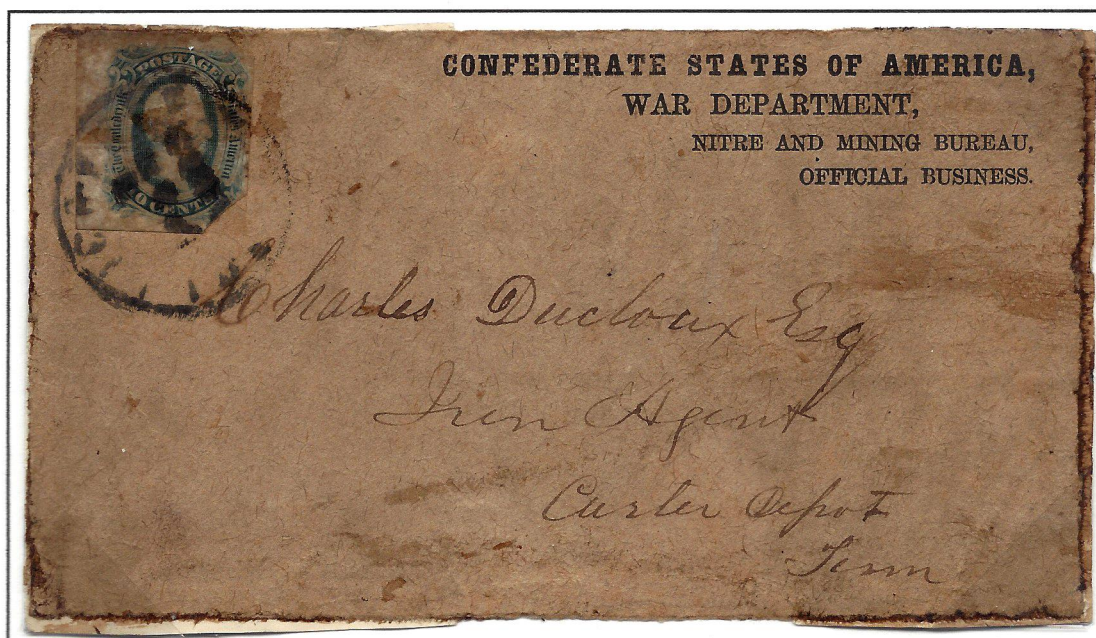 POSTAGE
CENTS
CONFEDERATE STATES OF AMERICA,
WAR DEPARTMENT,
NITRE AND MINING BUREAU,
OFFICIAL BUSINESS.
Charles Ducloux Esq
Iron Agent
Carter Depot
Tenn